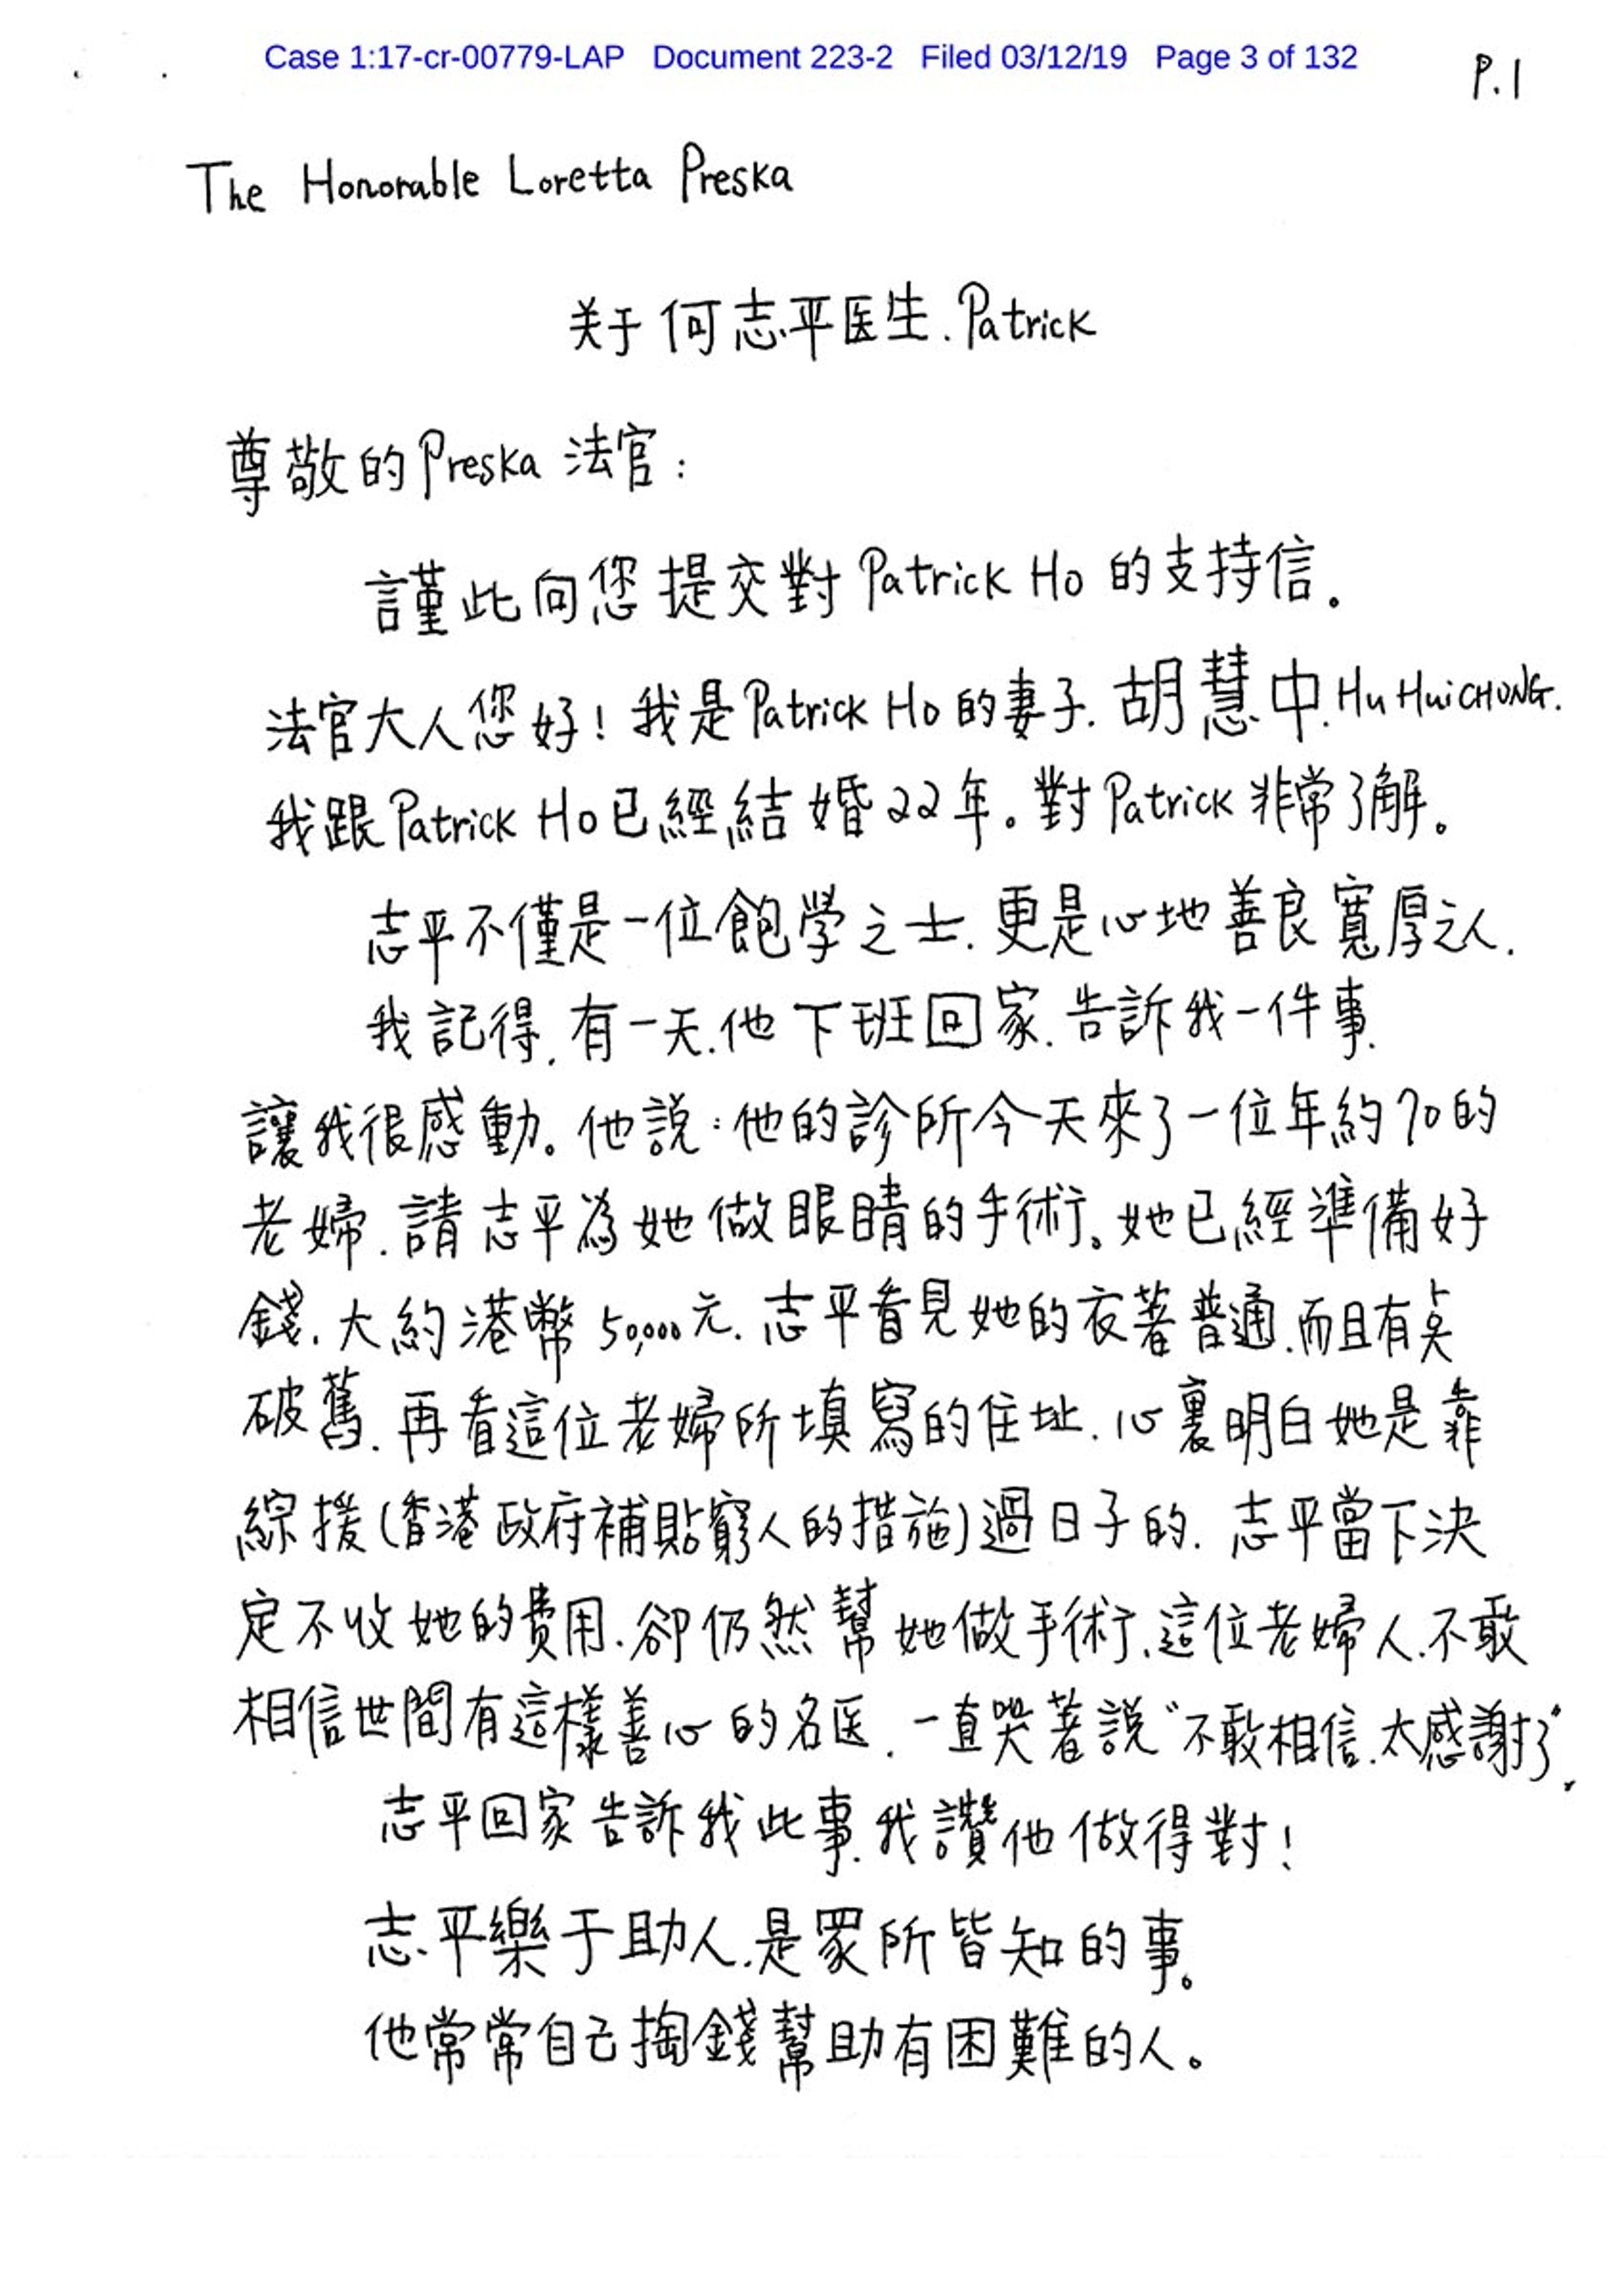 Case 1:17-cr-00779-LAP Document 223-2 Filed 03/12/19 Page 3 of 132
P.1
The Honorable Loretta Preska
关于何志平医生.Patrick
尊敬的Preska法官:
謹此向您提交對Patrick Ho的支持信。
法官大人您好!我是Patrick Ho的妻子.胡慧中.Hu HuiCHONG.
我跟Patrick Ho已經結婚22年。對Patrick非常了解。
志平不僅是一位飽學之士.更是心地善良寬厚之人.
我記得.有一天.他下班回家.告訴我一件事.
讓我很感動。他説:他的診所今天來了一位年約70的
老婦.請志平為她做眼睛的手術。她已經準備好
錢.大約港幣50,000元.志平看見她的衣著普通.而且有点
破舊.再看這位老婦所填寫的住址.心裏明白她是靠
綜援(香港政府補貼窮人的措施)過日子的.志平當下決
定不收她的費用.卻仍然幫她做手術.這位老婦人.不敢
相信世間有這樣善心的名医.一直哭著說“不敢相信.太感謝了”.
志平回家告訴我此事.我讚他做得對!
志平樂于助人.是眾所皆知的事。
他常常自己掏錢幫助有困難的人。